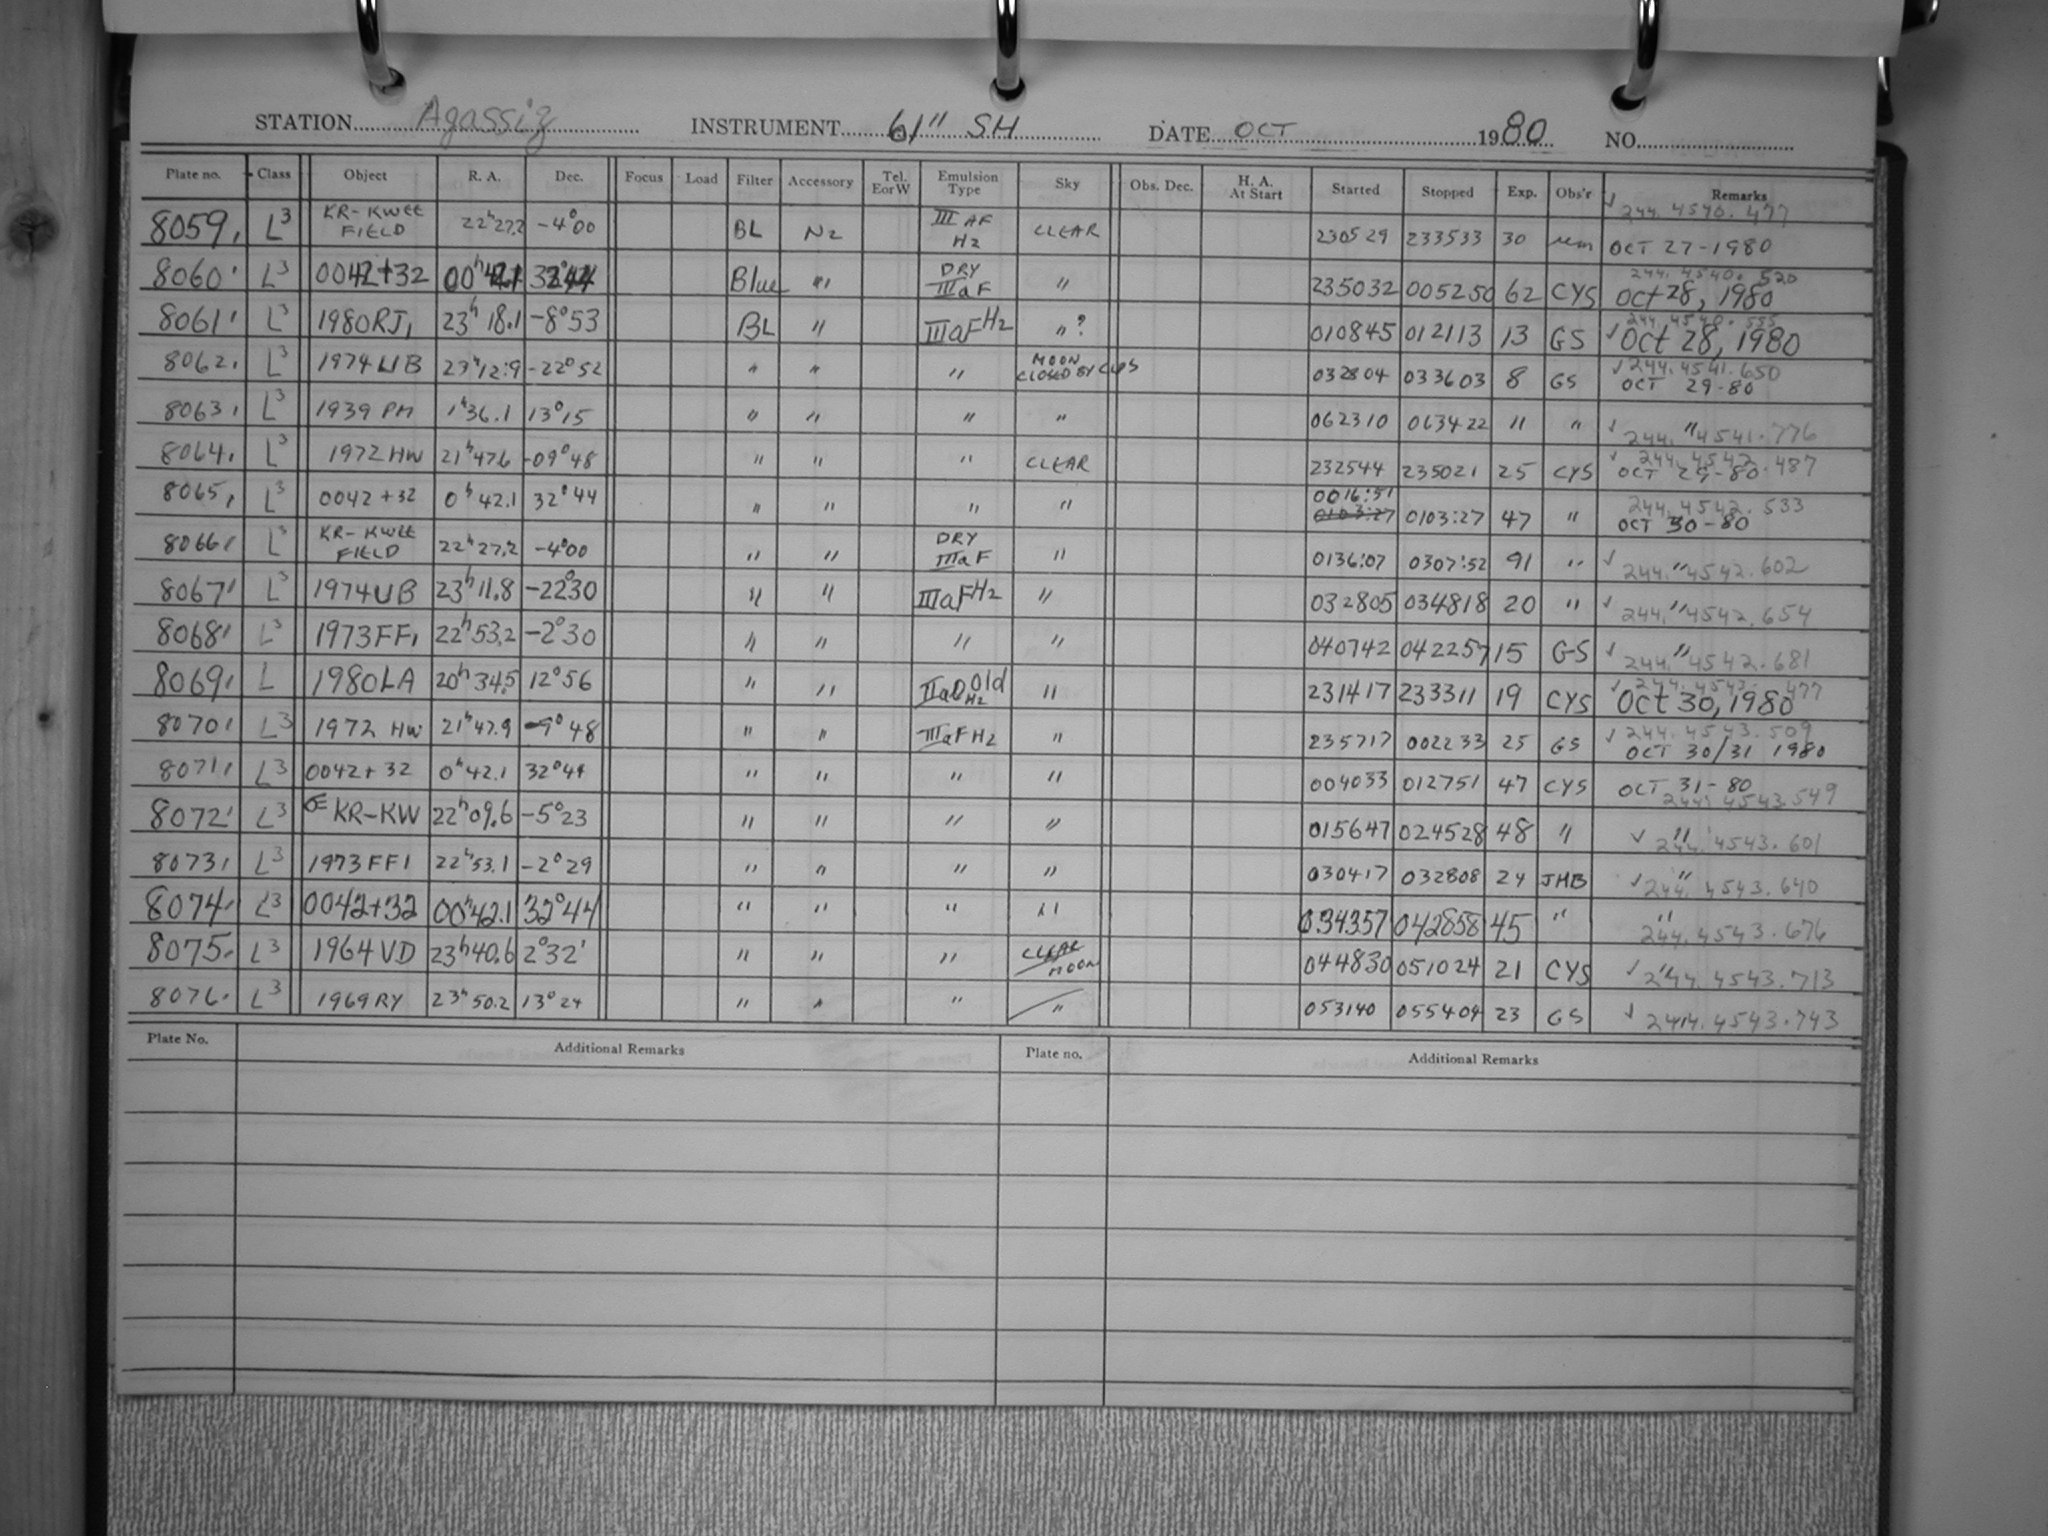 STATION Agassiz INSTRUMENT 61" SH DATE OCT 1980 NO.
Plate no. Class Object R. A. Dec. Focus Load Filter Accessory Tel. EorW Emulsion Type Sky Obs. Dec. H. A. At Start Started Stopped Exp. Obs'r Remarks
8059 L3 KR-KWEE FIELD 22h27.2 -4°00 BL N2 III AF H2 CLEAR 230529 233533 30 ✓ 244.4540.477 OCT 27-1980
8060 L3 0042+32 00h42.1 32°44 Blue " DRY IIIaF " 235032 005250 62 CYS 244.4540.520 Oct 28, 1980
8061 L3 1980RJ1 23h18.1 -8°53 BL " IIIaF H2 "? 010845 012113 13 GS ✓ 244.4540.555 Oct 28, 1980
8062 L3 1974UB 23h12.9 -22°52 " " " MOON CLOSED BY CYS 032804 033603 8 GS ✓ 244.4541.650 OCT 29-80
8063 L3 1939 PM 1h36.1 13°15 " " " " 062310 063422 11 " ✓ " 244.4541.776
8064 L3 1972 HW 21h47.6 -09°48 " " " CLEAR 232544 235021 25 CYS ✓ 244.4542.487 OCT 29-80
8065 L3 0042+32 0h42.1 32°44 " " " " 0016:51 0103:27 0103:27 47 " 244.4542.533 OCT 30-80
8066 L3 KR-KWEE FIELD 22h27.2 -4°00 " " DRY IIIaF " 0136:07 0307:52 91 " ✓ " 244.4542.602
8067 L3 1974UB 23h11.8 -22°30 " " IIIaF H2 " 032805 034818 20 " ✓ " 244.4542.654
8068 L3 1973FF1 22h53.2 -2°30 " " " " 040742 042257 15 GS ✓ " 244.4542.681
8069 L 1980LA 20h34.5 12°56 " " IIaO old H2 " 231417 233311 19 CYS ✓ 244.4543.477 Oct 30, 1980
8070 L3 1972 HW 21h47.9 -9°48 " " IIIaF H2 " 235717 002233 25 GS ✓ 244.4543.509 OCT 30/31 1980
8071 L3 0042+32 0h42.1 32°44 " " " " 004033 012751 47 CYS OCT 31-80 244.4543.549
8072 L3 KR-KW 22h09.6 -5°23 " " " " 015647 024528 48 " ✓ " 244.4543.601
8073 L3 1973FF1 22h53.1 -2°29 " " " " 030417 032808 24 JHB ✓ " 244.4543.640
8074 L3 0042+32 00h42.1 32°44 " " " " 034357 042858 45 " " 244.4543.676
8075 L3 1964VD 23h40.6 2°32' " " " CLEAR MOON 044830 051024 21 CYS ✓ " 244.4543.713
8076 L3 1969RY 23h50.2 13°24 " " " " 053140 055404 23 GS ✓ 244.4543.743
Plate No. Additional Remarks Plate no. Additional Remarks